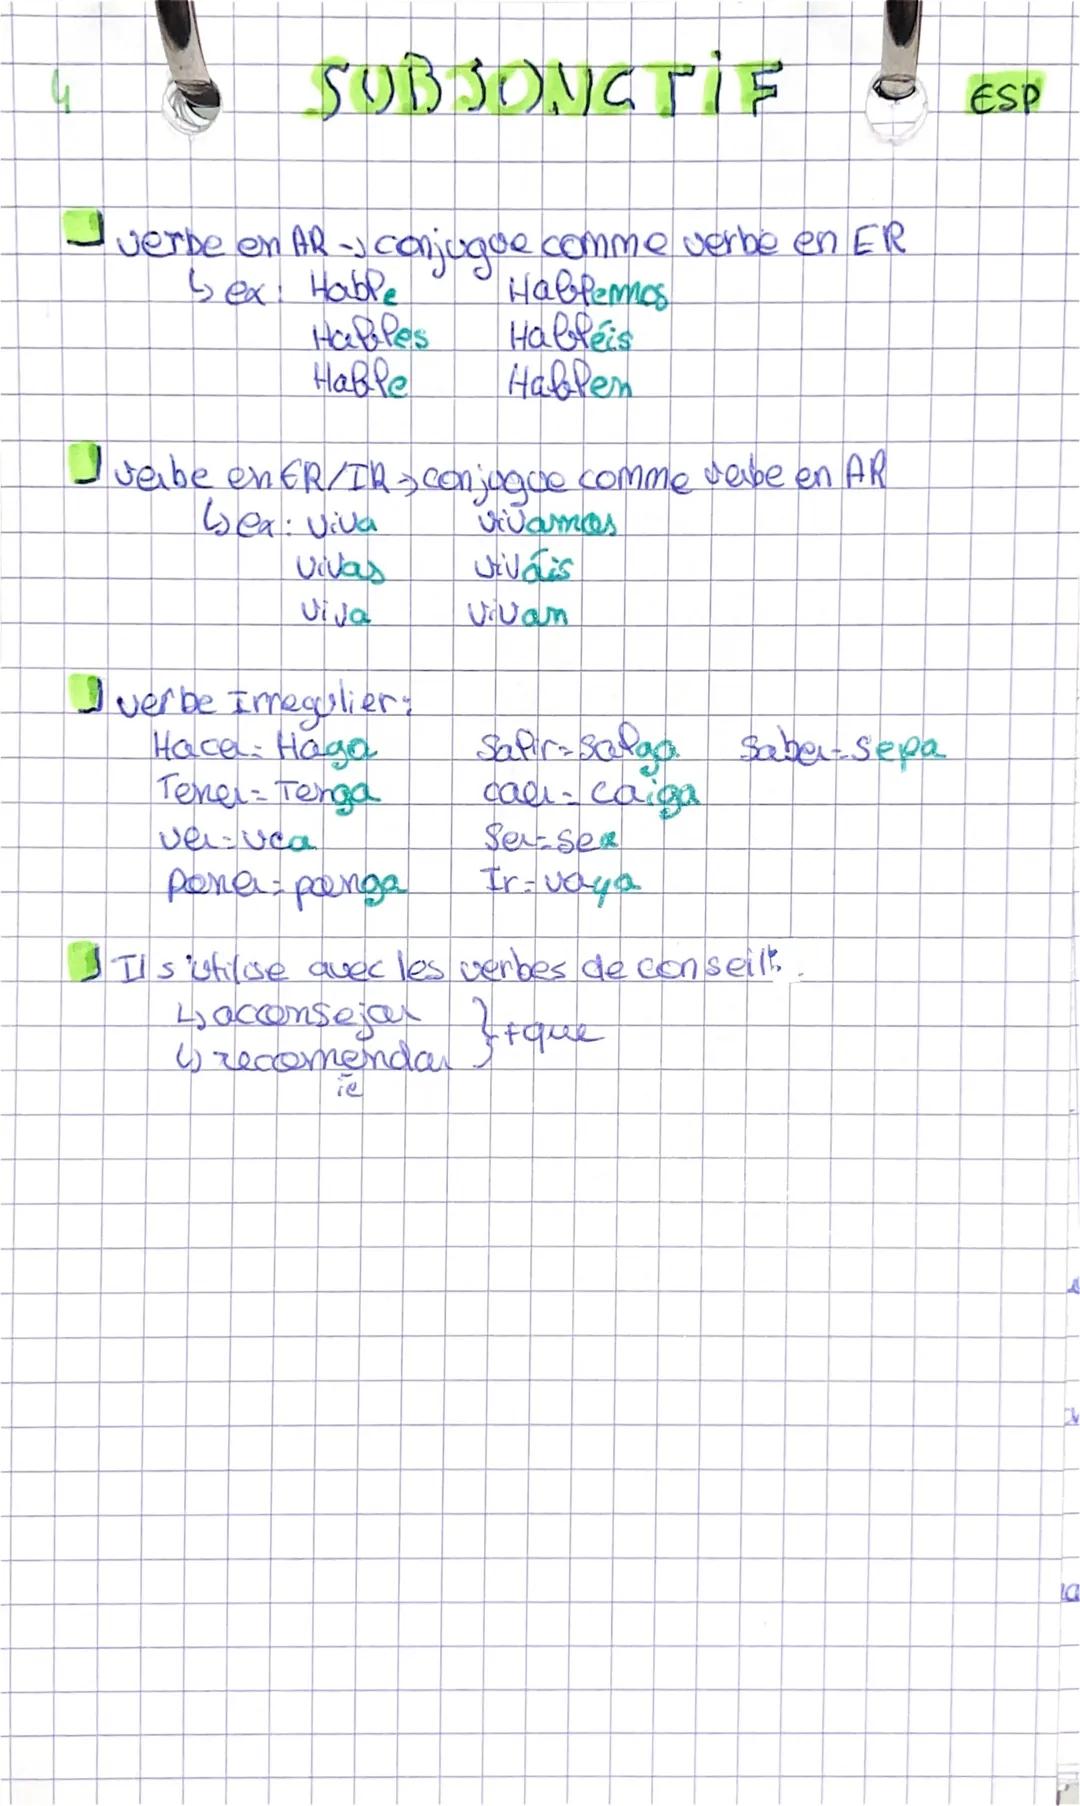 4 SUBJONCTIF ESP
verbe en AR → conjugue comme verbe en ER
↳ ex: Hable Hablemos
Hables Habléis
Hable Hablen
verbe en ER/IR → conjugue comme verbe en AR
↳ ex: viva vivamos
vivas viváis
viva vivan
verbe Irregulier:
Hacer = Haga Salir = Salga Saber = sepa
Tener = Tenga caer = caiga
ver = vea Ser = sea
poner = ponga Ir = vaya
Il s'utilise avec les verbes de conseil:
↳ aconsejar } + que
↳ recomendar
ie